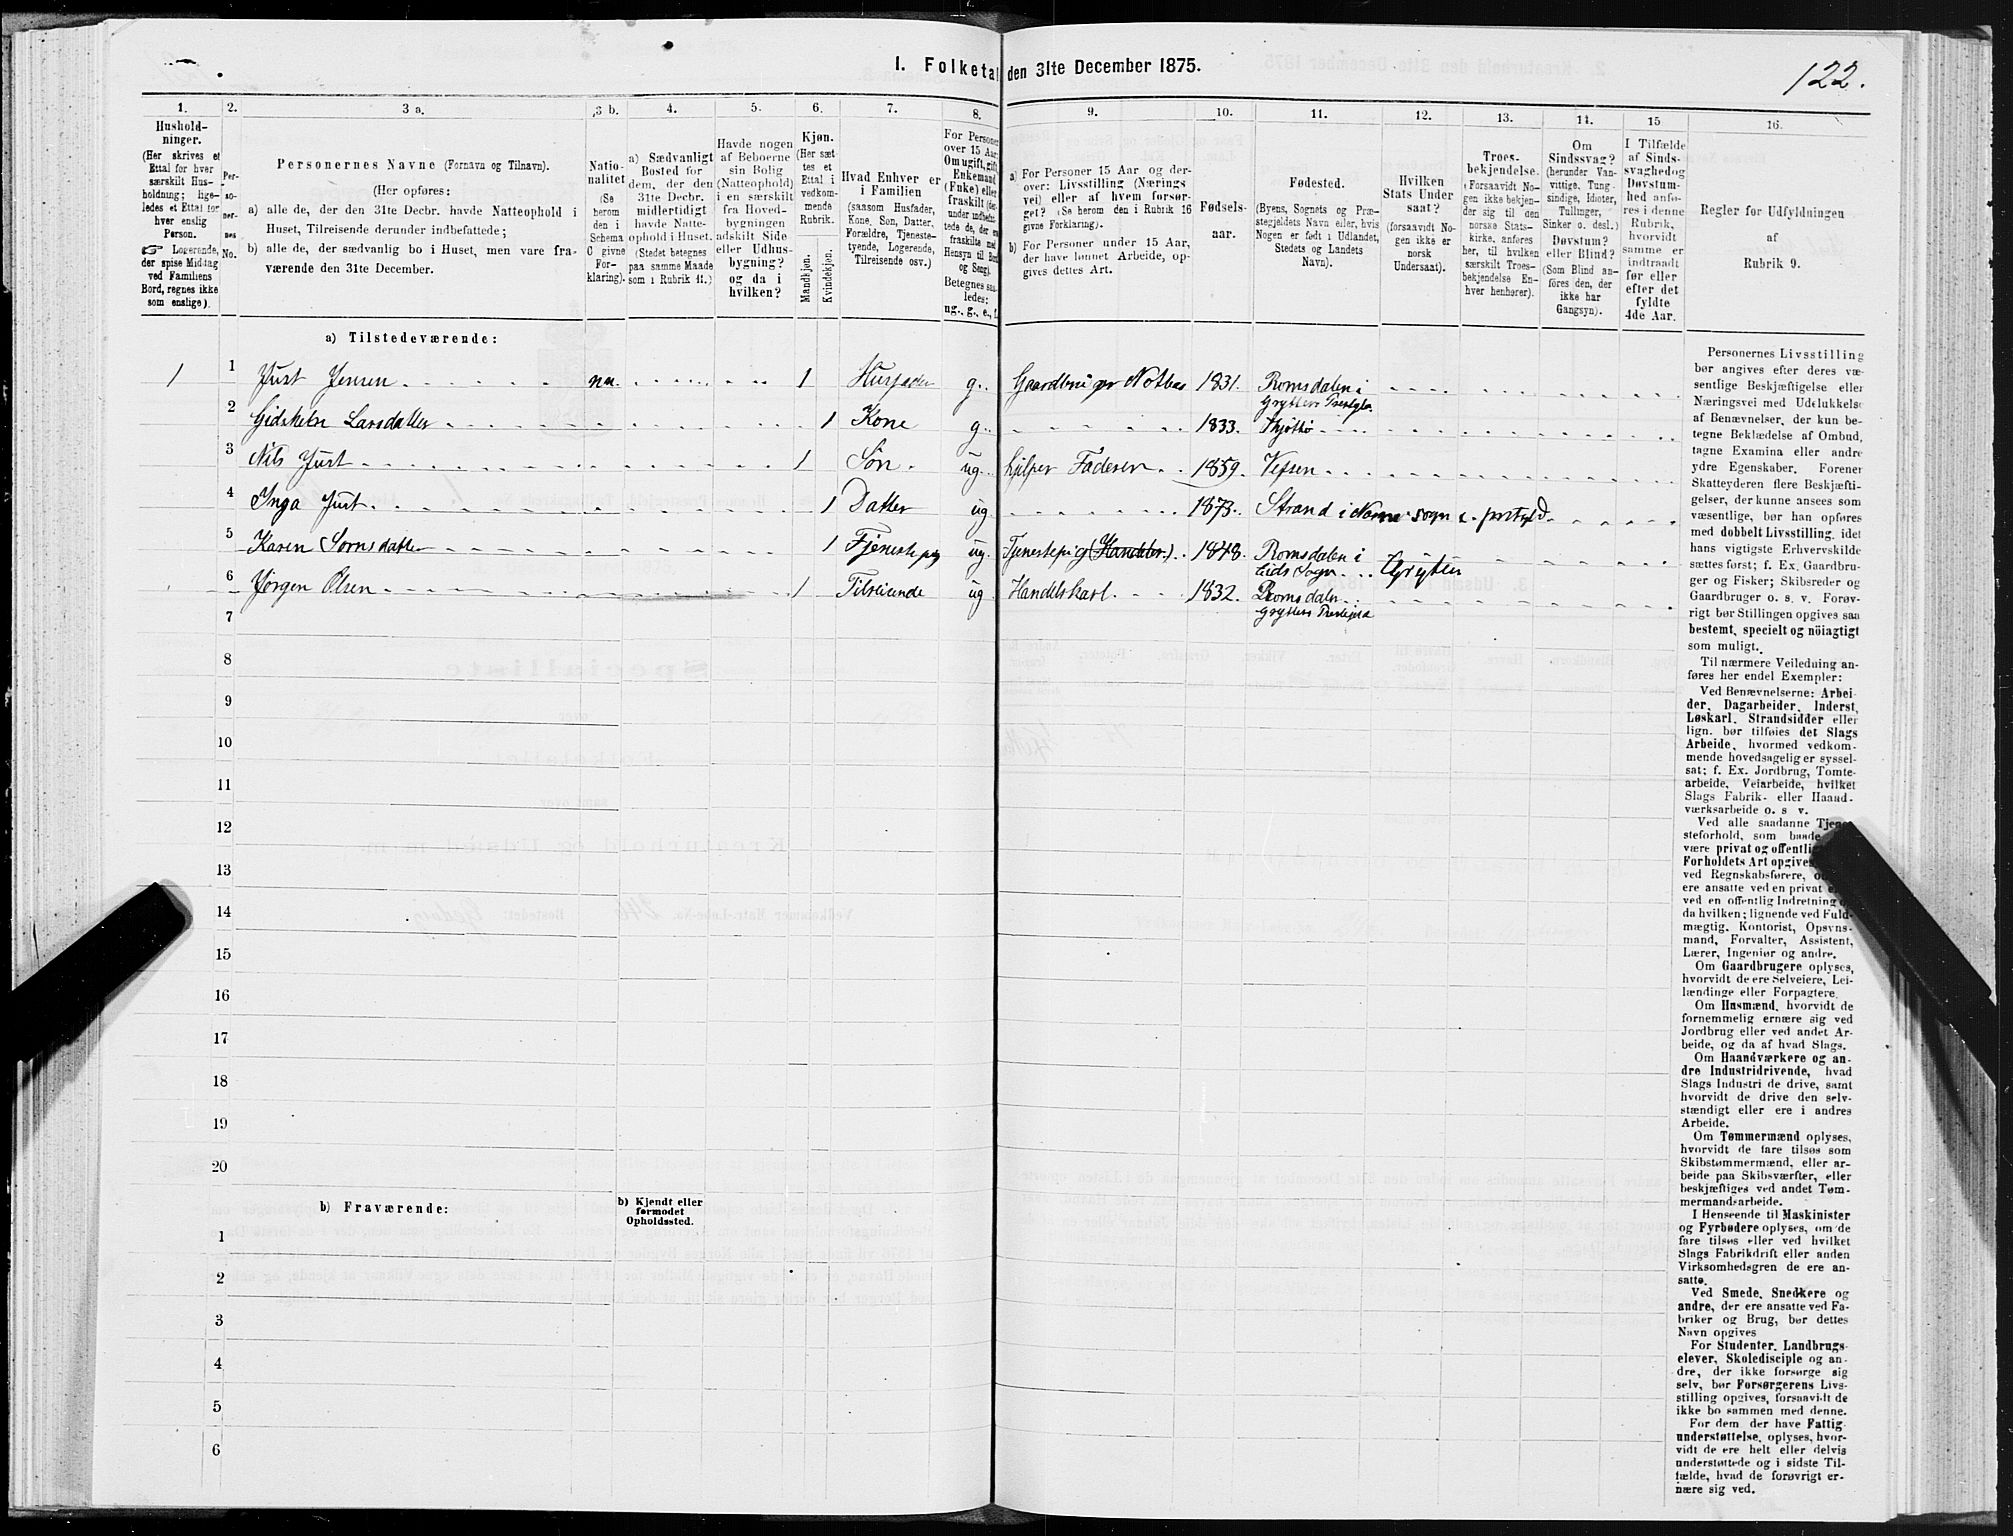 I. Folketal den 31te December 1875.
122.
1.
2.
3 a.
3 b.
4.
5.
6.
7.
8.
9.
10.
11.
12.
13.
14.
15
16.
Hushold-
ninger.
(Her skrives et
Ettal for hver
særskilt Hus-
holdning; lige-
ledes et Ettal for
hver enslig
Person.
☞ Logerende,
der spise Middag
ved Familiens
Bord, regnes ikke
som enslige).
Per-
so-
ner-
nes
No.
Personernes Navne (Fornavn og Tilnavn).
(Her opføres:
a) alle de, der den 31te Decbr. havde Natteophold i
Huset, Tilreisende derunder indbefattede;
b) alle de, der sædvanlig bo i Huset, men vare fra-
værende den 31te December.
Natio-
nalitet
(Se
herom
den i
Schema
O givne
For-
klaring).
a) Sædvanligt
Bosted for
dem, der den
31te Decbr.
midlertidigt
havde Natte-
ophold i Huset.
(Stedet betegnes
paa samme Maade
som i Rubrik 11.)
Havde nogen
af Beboerne
sin Bolig
(Natteophold)
i en særskilt
fra Hoved-
bygningen
adskilt Side
eller Udhus-
bygning?
og da i
hvilken?
Kjøn.
(Her sæt-
tes et
Ettal i
vedkom-
mende
Rubrik.
Mandkjøn.
Kvindekjøn.
Hvad Enhver er
i Familien
(saasom Husfader,
Kone, Søn, Datter,
Forældre, Tjeneste-
tyende, Logerende,
Tilreisende osv.)
For Personer
over 15 Aar:
Om ugift, gift,
Enkemand
(Enke) eller
fraskilt
Betegnes saa-
ledes:
ug., g., e., f.
a) For Personer 15 Aar og der-
over: Livsstilling (Nærings-
vei) eller af hvem forsør-
get? (Se herom den i Rubrik 16
givne Forklaring).
b) For Personer under 15 Aar,
der have lønnet Arbeide, op-
gives dettes Art.
Fødsels-
aar.
Fødested.
(Byens, Sognets og Præ-
stegjeldets Navn eller, hvis
Nogen er født i Udlandet,
Stedets og Landets
Navn).
Hvilken
Stats Under
saat?
(forsaavidt No-
gen ikke er
norsk
Undersaat).
Troes-
bekjendelse.
(Forsaavidt No-
gen ikke bekjen-
der sig til den
norske Stats-
kirke, anføres
her, til hvilken
særskilt Troes-
bekjendelse En-
hver henhører).
Om
Sindssvag?
(herunder Van-
vittige, Tung-
sindige, Idioter,
Tullinger,
Sinker o. desl.)
Døvstum?
eller Blind?
(Som Blind an-
føres den, der
ikke har
Gangsyn).
I Tilfælde
af Sinds-
svaghed og
Døvstum-
hed anfø-
res i denne
Rubrik,
hvorvidt
samme er
indtraadt
før eller
efter det
fyldte
4de Aar.
Regler for Udfyldningen
af
Rubrik 9.
a) Tilstedeværende:
1 1 Just Jensen nn. 1 Husfader g. 1831. Romsdalen i
Gryttens
2 Larsdatter 1 Kone g. 1833.
3 Nils Just 1 Søn ug. hjelper Faderen 1859. Vefsen
4 Inga Just 1 Datter ug 1873. Strand i
5 Karen 1 ug. 1848. Romsdalen i
Eids Sogn Grytten
6 Jørgen Olsen 1 Tilreisende ug Handelskarl 1832. Romsdalen
Gryttens
7
8
9
10
11
12
13
14
15
16
17
18
19
20
b) Fraværende:
b) Kjendt eller
formodet
Opholdssted.
1
2
3
4
5
6
Personernes Livsstilling
bør angives efter deres væ-
sentlige Beskjæftigelse eller
Næringsvei med Udelukkelse
af Benævnelser, der kun be-
tegne Beklædelse af Ombud,
tagne Examina eller andre
ydre Egenskaber. Forener
Skatteyderen flere Beskjæfti-
gelser, der kunne ansees som
væsentlige, bør han opføres
med dobbelt Livsstilling, idet
hans vigtigste Erhvervskilde
sættes først; f. Ex. Gaardbru-
ger og Fisker; Skibsreder og
Gaardbruger o. s. v. Forøv-
rigt bør Stillingen opgives saa
bestemt, specielt og nöiagtigt
som muligt.
Til nærmere Veiledning an-
føres her endel Exempler:
Ved Benævnelserne: Arbei-
der, Dagarbeider, Inderst,
Løskarl, Strandsidder eller
lign. bør tilføies det Slags
Arbeide, hvormed vedkom-
mende hovedsagelig er syssel-
sat; f. Ex. Jordbrug, Tomte-
arbeide, Veiarbeide, hvilket
Slags Fabrik- eller Haand-
værksarbeide o. s. v.
Ved alle saadanne Tjene-
steforhold, som baade
være privat og offentlig
Forholdets Art opgives
ved Regnskabsførere,
ere ansatte ved en privat
ved en offentlig Indretning
da hvilken; lignende ved Fuld-
mægtig, Kontorist, Opsyns-
mand, Forvalter, Assistent,
Lærer, Ingeniør og andre.
Om Gaardbrugere oplyses,
hvorvidt de ere Selveiere, Lei-
lændinge eller Forpagtere.
Om Husmænd, hvorvidt de
fornemmelig ernære sig ved
Jordbrug eller ved andet Ar-
beide, og da af hvad Slags.
Om Haandværkere og an-
dre Industridrivende, hvad
Slags Industri de drive, samt
hvorvidt de drive den selv-
stændigt eller ere i andres
Arbeide.
Om Tømmermænd oplyses,
hvorvidt de fare tilsøs som
Skibstømmermænd, eller ar-
beide paa Skibsværfter, eller
beskjæftiges ved andet Tøm-
mermandsarbeide.
I Henseende til Maskinister
og Fyrbødere oplyses, om de
fare tilsøs eller ved hvilket
Slags Fabrikdrift eller anden
Virksomhedsgren de ere an-
satte.
Ved Smede, Snedkere og
andre, der ere ansatte ved Fa-
briker og Brug, bør dettes
Navn opgives
For Studenter, Landbrugs-
elever, Skoledisciple og an-
dre, der ikke forsørge sig
selv, bør Forsørgerens Livs-
stilling opgives, forsaavidt de
ikke bo sammen med denne.
For dem, der have Fattig-
understøttelse, oplyses, hvor-
vidt de ere helt eller delvis
understøttede og i sidste Til-
fælde, hvad de forøvrigt er-
nære sig ved.